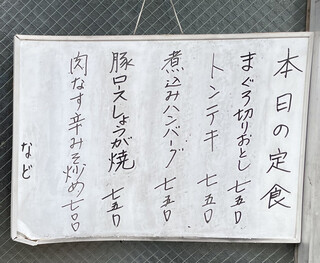 本日の定食
まぐろ切りおとし 七五〇
トンテキ 七五〇
煮込みハンバーグ 七五〇
豚ロースしょうが焼 七五〇
肉なす辛みそ炒め 七〇〇
など